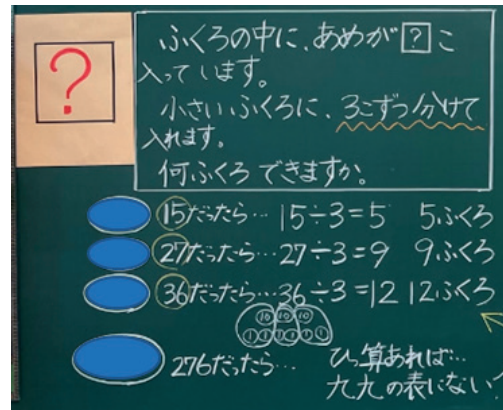 ?
ふくろの中に、あめが?こ
入っています。
小さいふくろに、3こずつ分けて
入れます。
何ふくろできますか。
15だったら… 15÷3=5 5ふくろ
27だったら… 27÷3=9 9ふくろ
36だったら… 36÷3=12 12ふくろ
10 10 10
1 1 1 1 1 1
276だったら… ひっ算あれば…
九九の表にない!